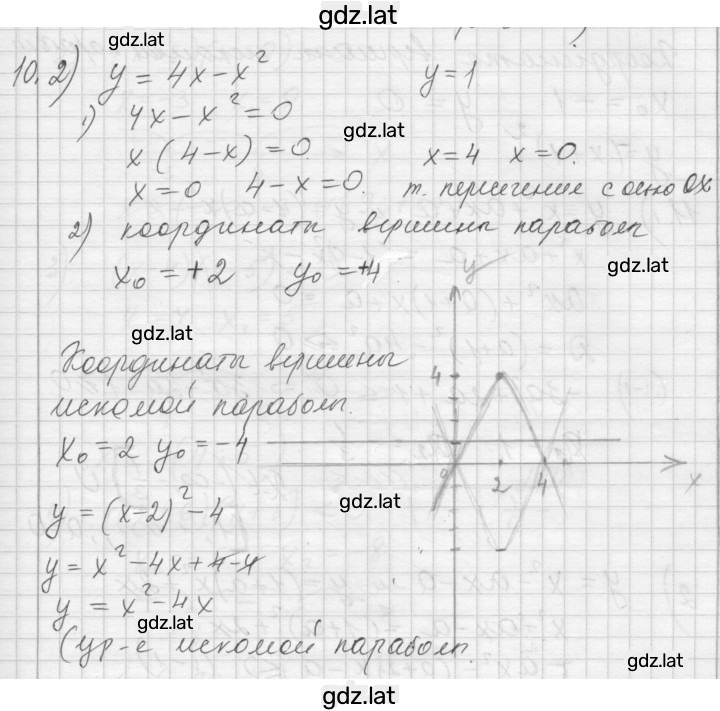 gdz.lat
gdz.lat
10.2) y = 4x - x² y = 1
1) 4x - x² = 0
gdz.lat
x (4 - x) = 0 x = 4 x = 0.
x = 0 4 - x = 0. т. пересечение с осью OX
2) координаты вершины параболы
x₀ = +2 y₀ = +4
gdz.lat
y
gdz.lat
Координаты вершины
искомой параболы.
x₀ = 2 y₀ = -4
4
0 2 4 x
gdz.lat
y = (x-2)² - 4
y = x² - 4x + 4 - 4
y = x² - 4x
gdz.lat
(ур-е искомой параболы.
gdz.lat
gdz.lat